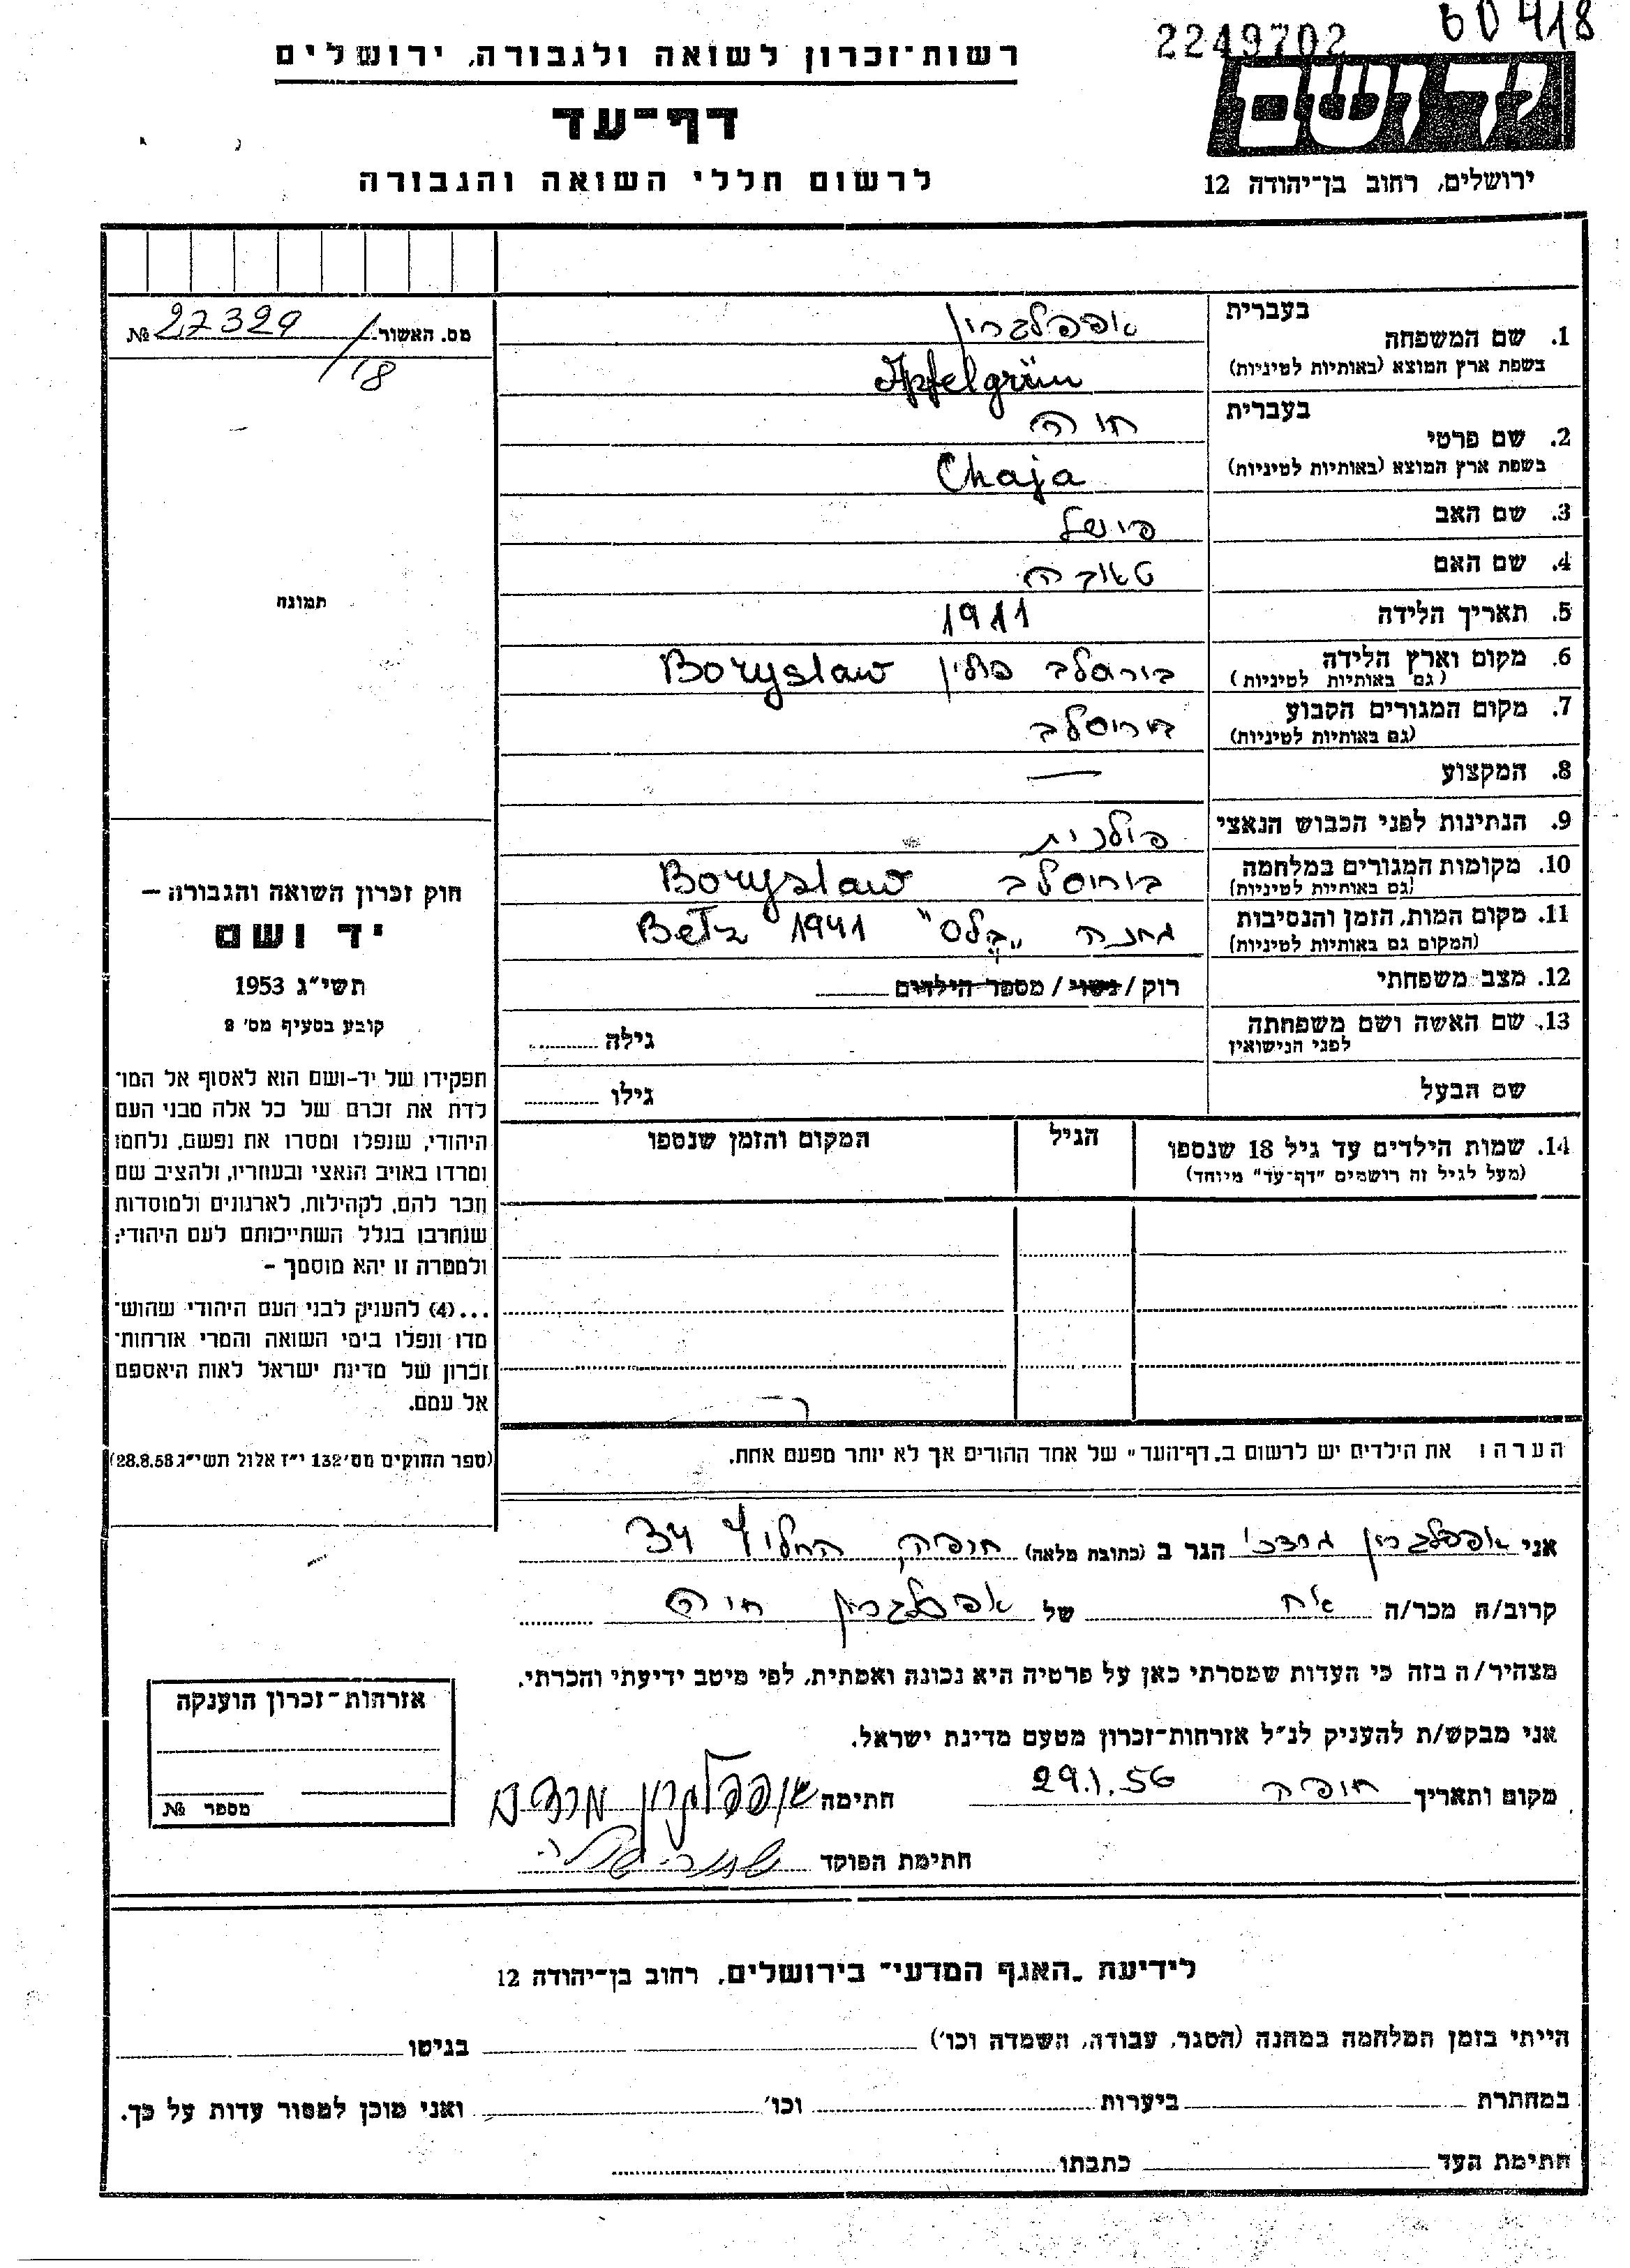 60418
2249702
רשות־זכרון לשואה ולגבורה, ירושלים
דף־עד
לרשום חללי השואה והגבורה
יד ושם
ירושלים, רחוב בן־יהודה 12
מס. האשור № 27329/18
תמונה
בעברית
1. שם המשפחה אפפלגרין
בשפת ארץ המוצא (באותיות לטיניות) Apfelgrün
בעברית
2. שם פרטי חיה
בשפת ארץ המוצא (באותיות לטיניות) Chaja
3. שם האב פישל
4. שם האם טאובה
5. תאריך הלידה 1911
6. מקום וארץ הלידה בוריסלב פולין Boryslaw
(גם באותיות לטיניות)
7. מקום המגורים הקבוע בוריסלב
(גם באותיות לטיניות)
8. המקצוע —
9. הנתינות לפני הכבוש הנאצי פולנית
10. מקומות המגורים במלחמה בוריסלב Boryslaw
(גם באותיות לטיניות)
11. מקום המות, הזמן והנסיבות מחנה 1941
(המקום גם באותיות לטיניות)
12. מצב משפחתי רוק / נשוי / מספר הילדים
13. שם האשה ושם משפחתה גילה
לפני הנישואין
שם הבעל גילו
14. שמות הילדים עד גיל 18 שנספו הגיל המקום והזמן שנספו
(מעל לגיל זה רושמים "דף־עד" מיוחד)
הערה: את הילדים יש לרשום ב„דף־העד" של אחד ההורים אך לא יותר מפעם אחת.
חוק זכרון השואה והגבורה —
יד ושם
תשי"ג 1953
קובע בסעיף מס׳ 2
תפקידו של יד-ושם הוא לאסוף אל המו־
לדת את זכרם של כל אלה מבני העם
היהודי, שנפלו ומסרו את נפשם, נלחמו
ומרדו באויב הנאצי ובעוזריו, ולהציב שם
וזכר להם, לקהילות, לארגונים ולמוסדות
שנחרבו בגלל השתייכותם לעם היהודי;
ולמטרה זו יהא מוסמך –
...(4) להעניק לבני העם היהודי שהוש־
מדו ונפלו בימי השואה והמרי אזרחות־
זכרון של מדינת ישראל לאות היאספם
אל עמם.
(ספר החוקים מס׳ 132 י״ז אלול תשי״ג 28.8.53)
אני אפפלגרין מרדכי הגר ב (כתובת מלאה) חיפה, החלוץ 34
קרוב/ה מכר/ה אח של אפפלגרין חיה
מצהיר/ה בזה כי העדות שמסרתי כאן על פרטיה היא נכונה ואמתית, לפי מיטב ידיעתי והכרתי.
אני מבקש/ת להעניק לנ״ל אזרחות־זכרון מטעם מדינת ישראל.
מקום ותאריך חיפה 29.1.56 חתימה אפפלגרין מרדכי
חתימת הפוקד
אזרחות־זכרון הוענקה
מספר №
לידיעת „האגף המדעי״ בירושלים, רחוב בן־יהודה 12
הייתי בזמן המלחמה במחנה (הסגר, עבודה, השמדה וכו׳) בגיטו
במחתרת ביערות וכו׳ ואני מוכן למסור עדות על כך.
חתימת העד כתבתו